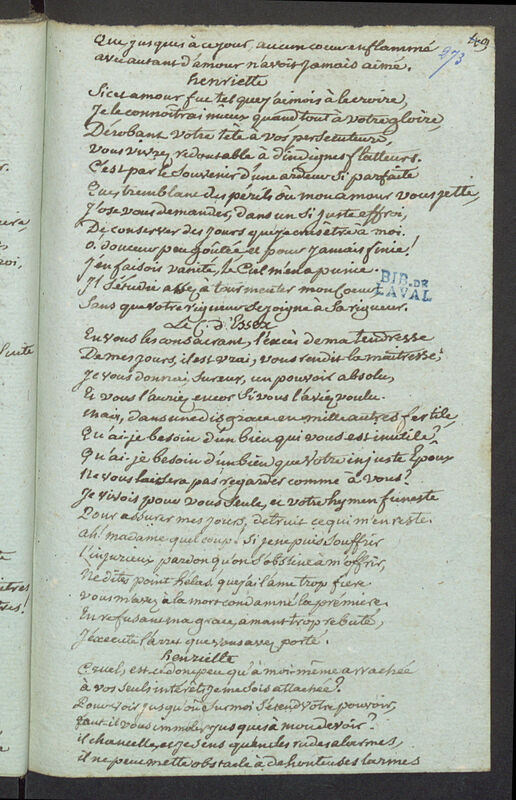 49
273
Que jusques à ce jour, aucun coeur enflammé
avec autant d'amour n'avoit jamais aimé.
henriette
Si cet amour fut tel que j'aimois à le croire,
Je le connoîtrai mieux quand tout à votre gloire,
Dérobant votre tete à vos persecuteurs,
Vous vivrez redoutable à d'indignes flatteurs.
C'est par le souvenir d'une ardeur si parfaite
Que tremblant des périls où mon amour vous jette,
J'ose vous demander, dans un si juste effroi,
De conserver des jours que je crus être à moi.
O! douceur peu goûtée et pour jamais finie!
J'en faisois vanité, le Ciel m'en a punie.
Il s'étudie assez à tourmenter mon Coeur
Sans que votre rigueur se joigne à sa rigueur.
BIB. DE
LAVAL
Le C. d'Essex
En vous les consacrant, l'excès de ma tendresse
De mes jours, il est vrai, vous rendit la maîtresse;
Je vous donnai sur eux, un pouvoir absolu,
Et vous l'auriez encor si vous l'aviez voulu.
Mais, dans une disgrace en mille autres fertile,
Qu'ai-je besoin d'un bien qui vous est inutile?
Qu'ai-je besoin d'un bien que votre injuste Epoux
Ne vous laissera pas regarder comme à vous?
Je vivois pour vous seule, et votre hymen funeste
Pour assurer mes jours, détruit ce qui m'en reste.
Ah! madame quel coup! Si je ne puis souffrir
L'injurieux pardon qu'on s'obstine à m'offrir,
Ne dites point hélas, que j'ai l'ame trop fiere
Vous m'avez à la mort condamné la prémiere.
En refusant ma grace, amant trop rebuté,
J'execute l'arret que vous avez porté.
henriette
Cruel, est-ce donc peu qu'à moi-même arrachée
à vos seuls intérêts je me sois attachée?
Pour voir jusqu'où sur moi s'étend votre pouvoir,
faut-il vous immoler jusques à mon devoir?
il chancelle, et je sens qu'en ses rudes alarmes,
il ne peut mettre obstacle à de honteuses larmes